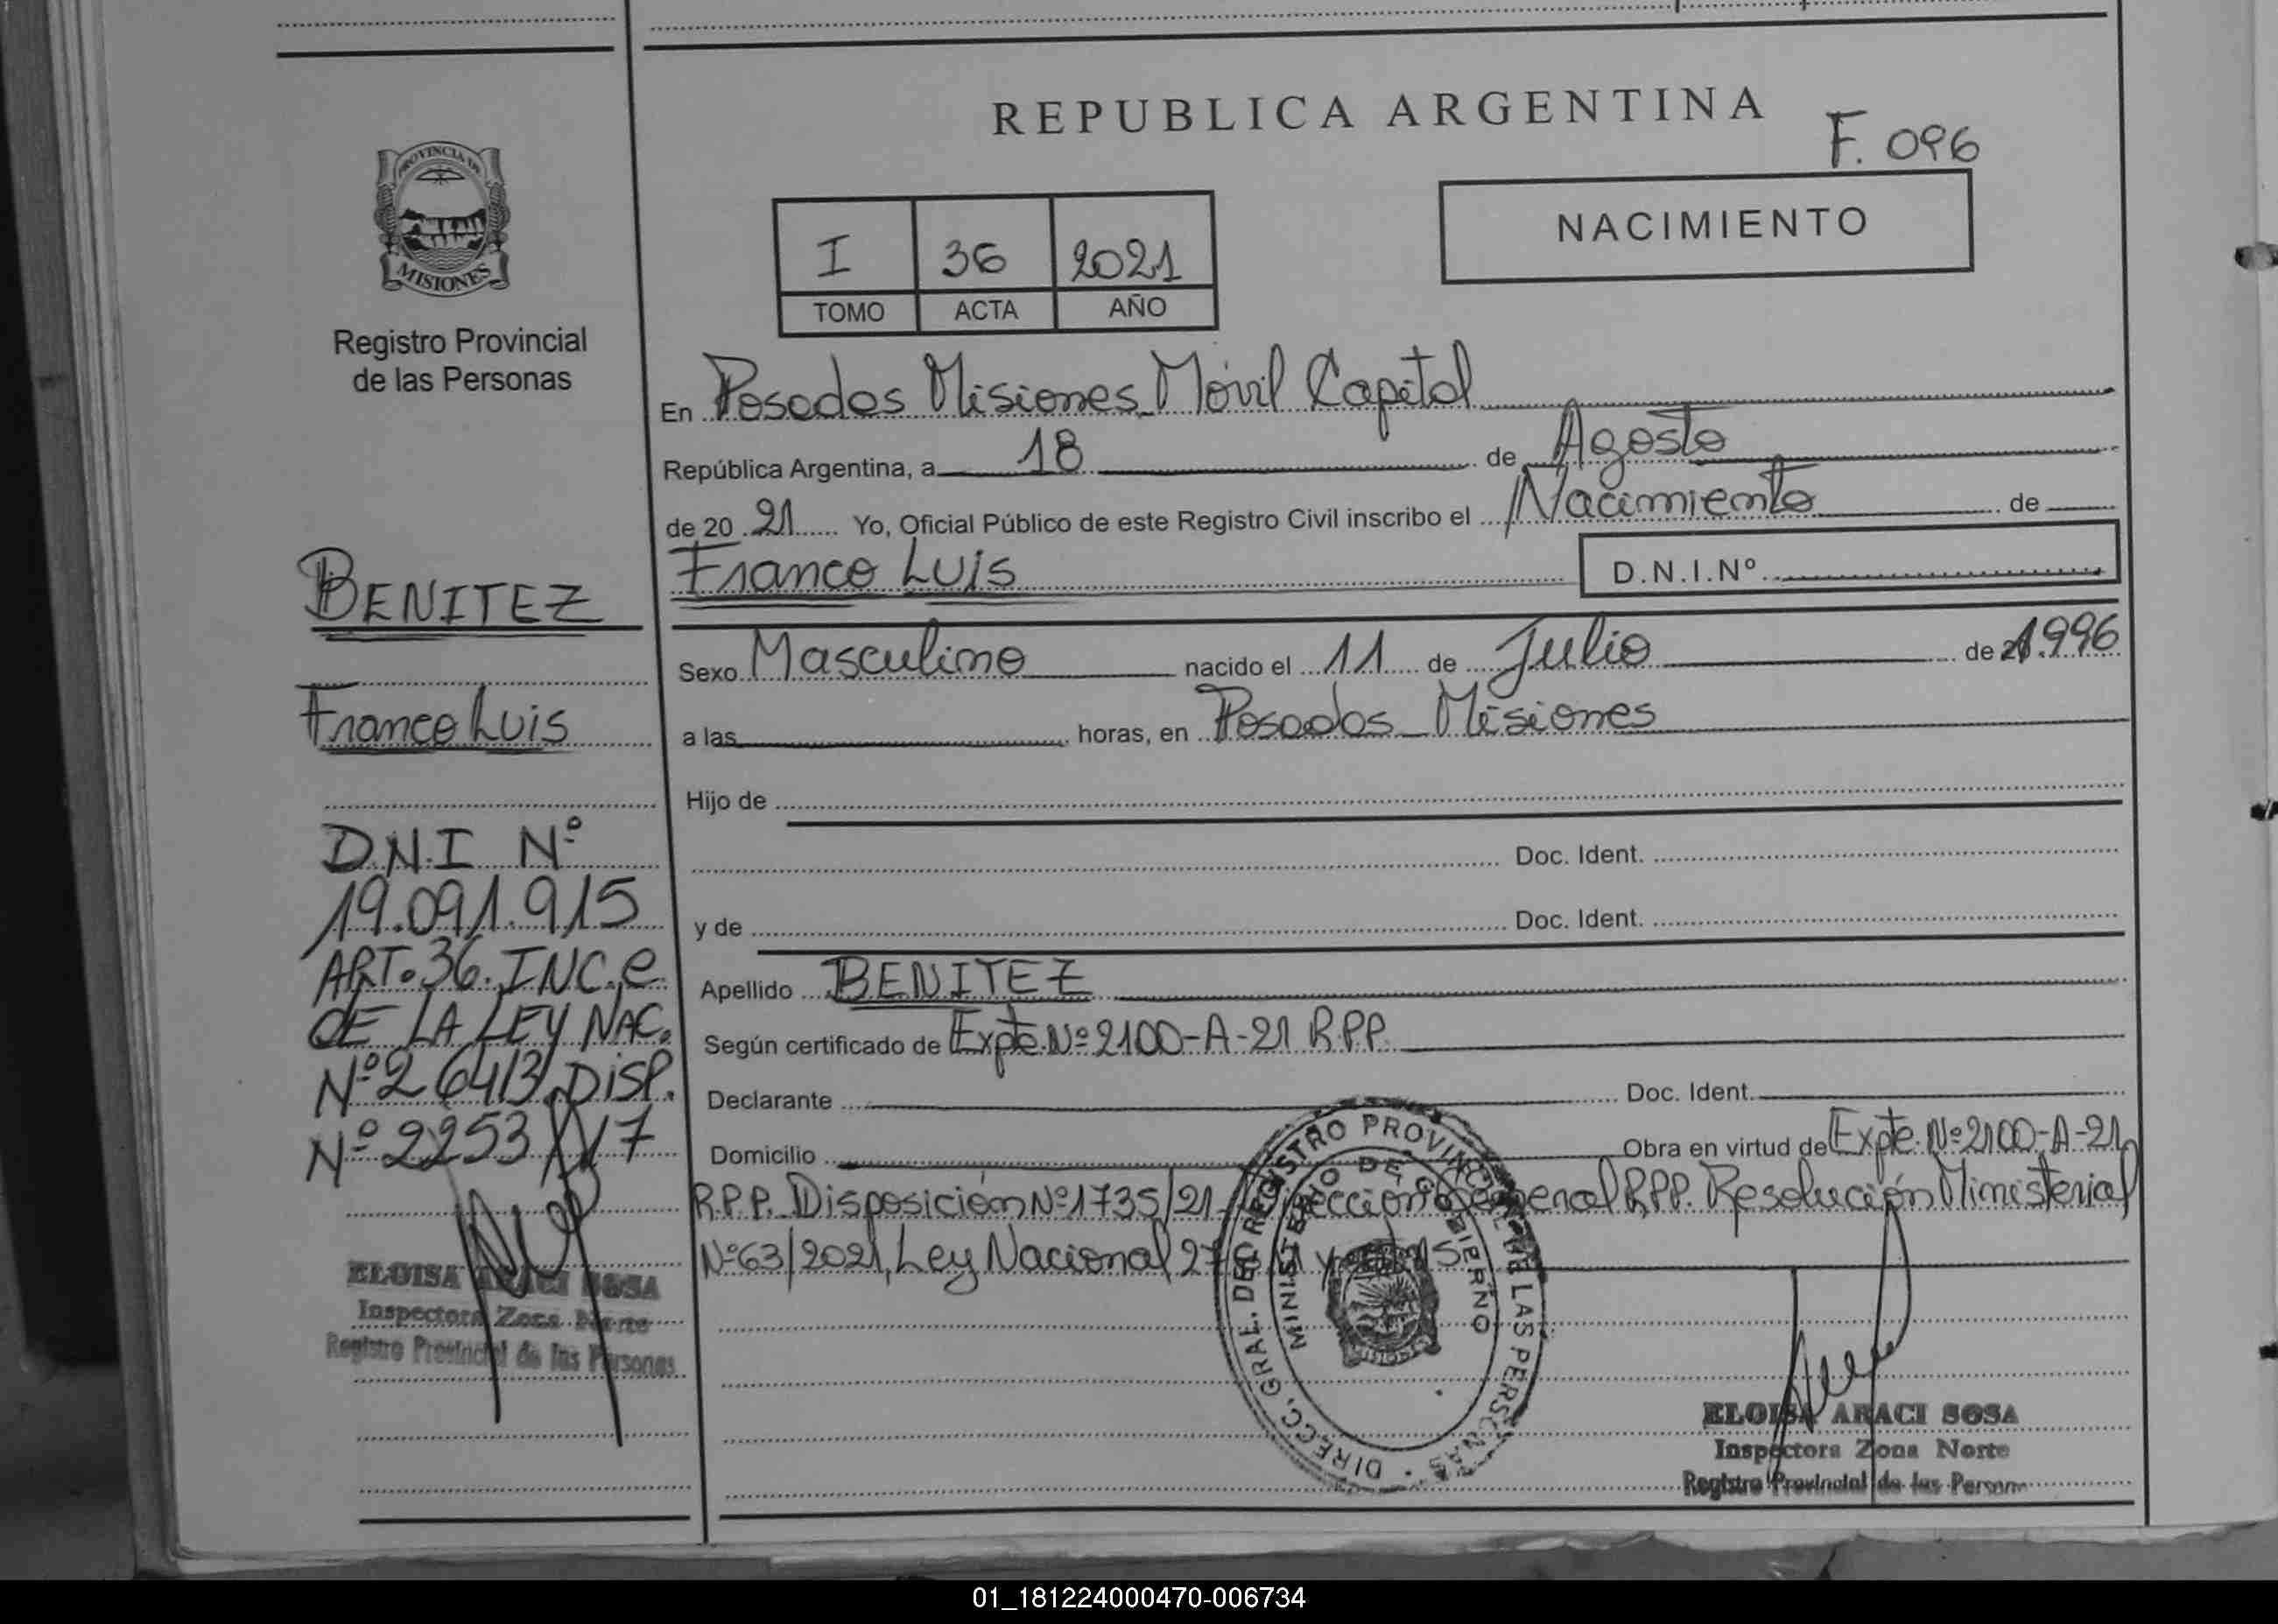 REPUBLICA ARGENTINA
F. 096
NACIMIENTO
I 36 2021
TOMO ACTA AÑO
PROVINCIA DE
MISIONES
Registro Provincial
de las Personas
BENITEZ
Franco Luis
D.N.I Nº
19.091.915
ART. 36. INC. e
DE LA LEY NAC.
Nº 26413 DISP.
Nº 2253/17
ELOISA ARACI SOSA
Inspectora Zona Norte
Registro Provincial de las Personas
En Posadas Misiones Móvil Capital
República Argentina, a 18 de Agosto
de 20 21 Yo, Oficial Público de este Registro Civil inscribo el Nacimiento de
Franco Luis D.N.I.Nº
Sexo Masculino nacido el 11 de Julio de 1996
a las horas, en Posadas Misiones
Hijo de
Doc. Ident.
y de Doc. Ident.
Apellido BENITEZ
Según certificado de Expte. Nº 2100-A-21 R.P.P.
Declarante Doc. Ident.
Domicilio Obra en virtud de Expte. Nº 2100-A-21
R.P.P. Disposición Nº 1735/21 Dirección General R.P.P. Resolución Ministerial
Nº 63/2021, Ley Nacional
DIRECC. GRAL. DEL REGISTRO PROVINCIAL DE LAS PERSONAS
MINISTERIO DE GOBIERNO
MISIONES
ELOISA ARACI SOSA
Inspectora Zona Norte
Registro Provincial de las Person
01_181224000470-006734